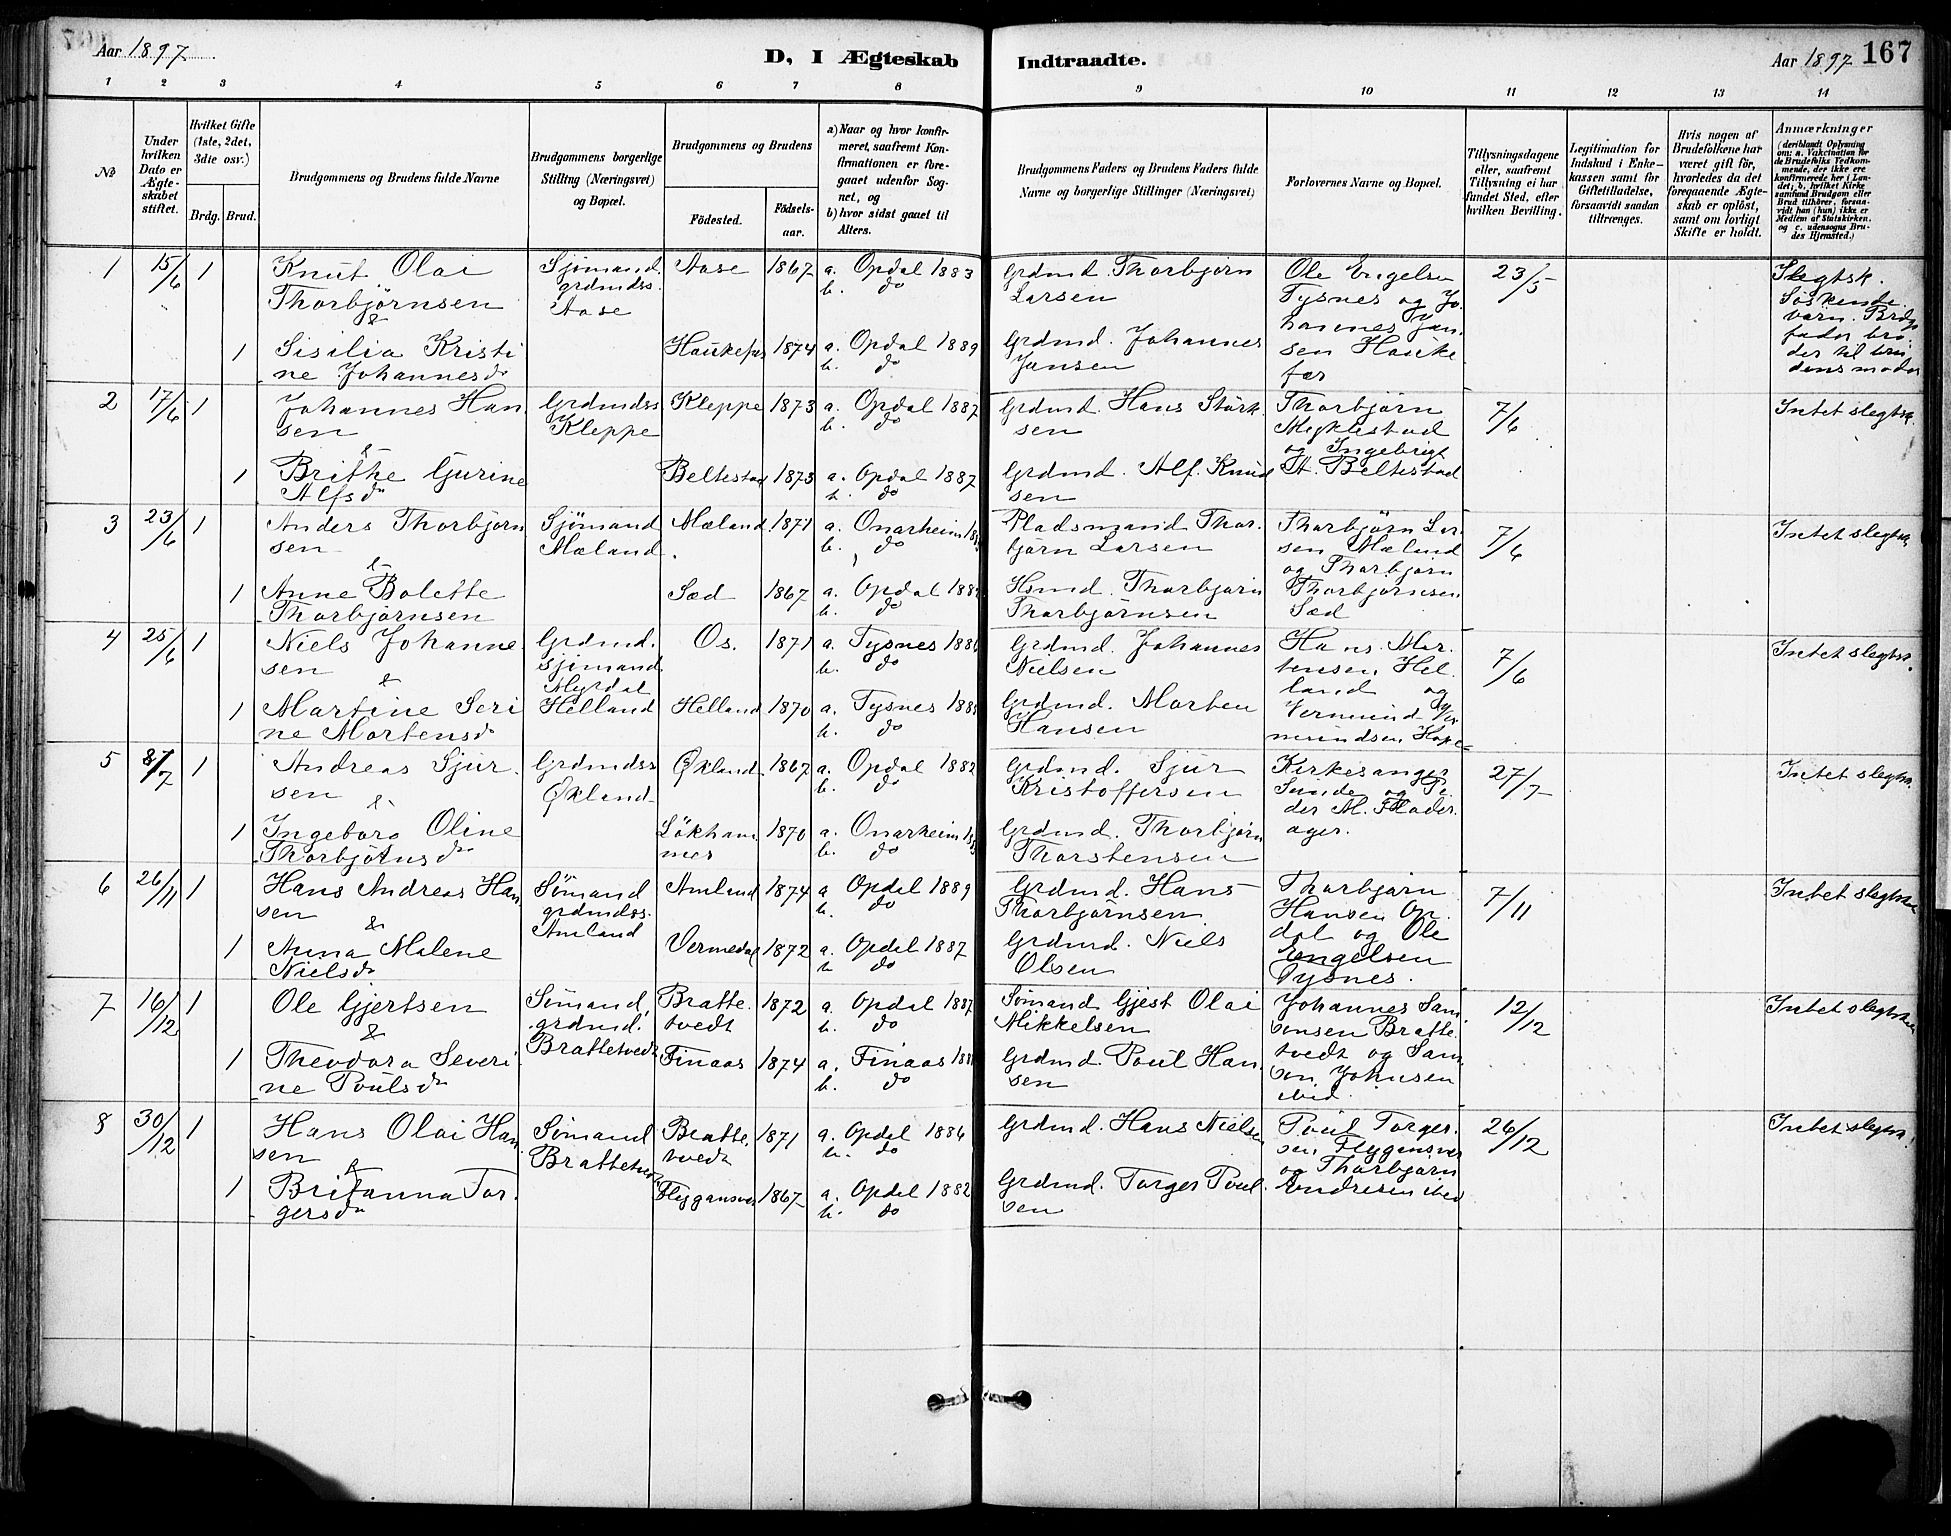 Aar 1897
D, I Ægteskab Indtraadte.
Aar 1897 167
1 2 3 4 5 6 7 8 9 10 11 12 13 14
№
Under hvilken Dato er Ægteskabet stiftet.
Hvilket Gifte (1ste, 2det, 3die osv.)
Brdg. Brud.
Brudgommens og Brudens fulde Navne
Brudgommens borgerlige Stilling (Næringsvei) og Bopæl.
Brudgommens og Brudens
Födested. Födsels-aar.
a) Naar og hvor konfirmeret, saafremt Konfirmationen er foregaaet udenfor Sognet, og
b) hvor sidst gaaet til Alters.
Brudgommens Faders og Brudens Faders fulde Navne og borgerlige Stillinger (Næringsvei)
Forlovernes Navne og Bopæl.
Tillysningsdagene eller, saafremt Tillysning ei har fundet Sted, efter hvilken Bevilling.
Legitimation for Indskud i Enkekassen samt for Giftetilladelse, forsaavidt saadan tiltrænges.
Hvis nogen af Brudefolkene har været gift för, hvorledes da det foregaaende Ægteskab er oplöst, samt om lovligt Skifte er holdt.
Anmærkninger
(deriblandt Oplysning om: a. Vakcination for de Brudefolks Vedkommende, der ikke ere konfirmerede her i Landet; b. hvilket Kirkesamfund Brudgom eller Brud tilhörer, forsaavidt han (hun) ikke er Medlem af Statskirken, og c. udensogns Brudes Hjemsted.)
1 15/6 1 Knut Olai Thorbjørnsen & Sjømand grdmdss. Aase Aase 1867 a. Opdal 1883 b. do Grdmd. Thorbjørn Larsen Ole Engelsen Tysnes og Johannes Jansen Haukefær 23/5 Slegtsk. Søskendebørn. Brdgs fader broder til brudens moder
1 Sisilia Kristine Johannesdr Haukefær 1874 a. Opdal 1889 b. do Grdmd. Johannes Jansen
2 17/6 1 Johannes Hansen & Grdmdss Kleppe Kleppe 1873 a. Opdal 1887 b. do Grdmd. Hans Størksen Thorbjørn Meklestad og Ingebrigt A. Beltestad 7/6 Intet slegtsk.
1 Brithe Gurine Alfsdr Beltestad 1873 a. Opdal 1887 b. do Grdmd. Alf Knudsen
3 23/6 1 Anders Thorbjørnsen & Sjømand Mæland. Mæland 1871 a. Onarheim b. do Pladsmand Thorbjørn Larsen Thorbjørn Larsen Mæland og Thorbjørn Thorbjørnsen Sæd 7/6 Intet slegtsk
1 Anne Bolette Thorbjørnsen Sæd 1867 a. Opdal b. do Hsmd. Thorbjørn Thorbjørnsen
4 25/6 1 Niels Johannesen & Grdmd. sjømand Myrdal Os. 1871 a. Tysnes b. do Grdmd. Johannes Nielsen Hans Mortensen Helland og Vermund Vermundsen Hope 7/6 Intet slegtsk.
1 Martine Serine Mortensdr Helland Helland 1870 a. Tysnes b. do Grdmd. Morten Hansen
5 8/7 1 Andreas Sjursen & Grdmdss Økland Økland 1867 a. Opdal 1882 b. do Grdmd. Sjur Kristoffersen Kirkesanger Sunde og Peder M. Fladerager. 27/7 Intet slegtsk.
1 Ingeborg Oline Thorbjørnsdr Løkhammer 1870 a. Onarheim b. do Grdmd. Thorbjørn Thorstensen
6 26/11 1 Hans Andreas Hansen & Sømand grdmdss. Amland Amland 1874 a Opdal 1889 b. do Grdmd. Hans Thorbjørnsen Thorbjørn Hansen Opdal og Ole Engelsen Tysnes. 7/11 Intet slegtsk
1 Anna Malene Nielsdr Vermedal 1872 a. Opdal 1887 b. do Grdmd. Niels Olsen
7 16/12 1 Ole Gjertsen & Sømand, grdmd. Brattetvedt Brattetvedt 1872 a. Opdal 1887 b. do Sømand Gjest Olai Mikkelsen Johannes Samsonsen Brattetvedt og Samson Johnsen ibid. 12/12 Intet slegtsk
1 Theodora Severine Poulsdr Finaas 1874 a. Finaas b. do Grdmd Poul Hansen
8 30/12 1 Hans Olai Hansen & Sømand Brattetvedt Brattetvedt 1871 a. Opdal 1886 b. do Grdmd. Hans Nielsen Poul Torgersen Flygansvær og Thorbjørn Endresen ibid 26/12 Intet slegtsk.
1 Britanna Torgersdr Flygansvær 1867 a. Opdal 1882 b. do Grdmd. Torger Poulsen